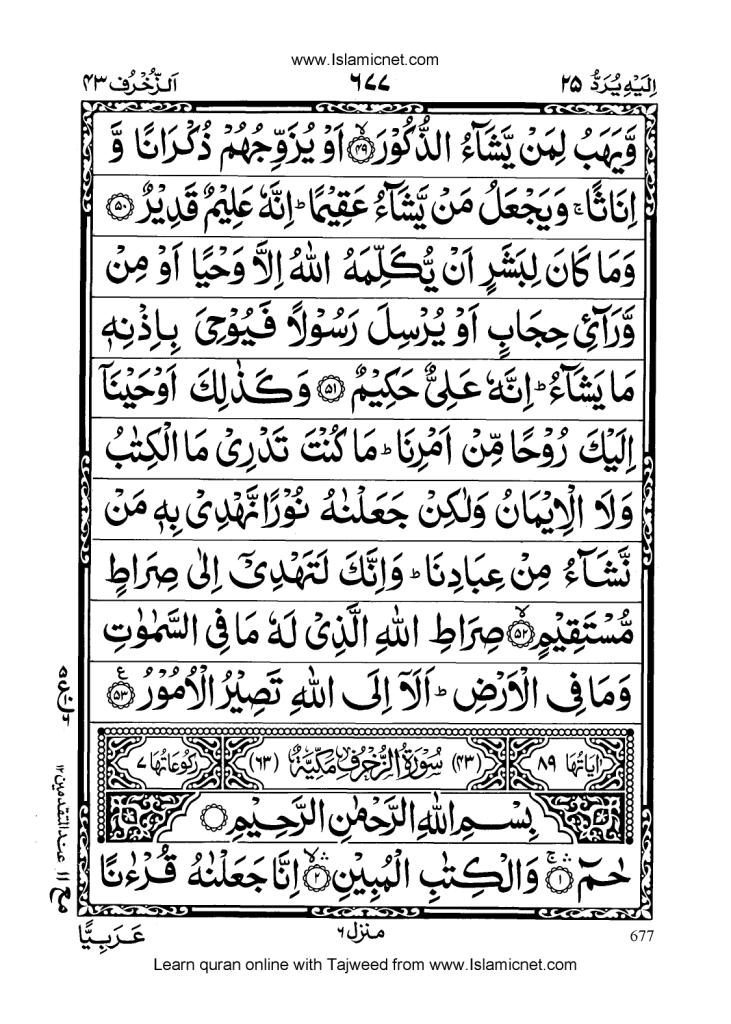 www.Islamicnet.com
اِلَيْهِ يُرَدُّ ٢٥ ٦٧٧ اَلزُّخْرُف ٤٣
وَّيَهَبُ لِمَنْ يَّشَآءُ الذُّكُوْرَۙ ﴿٤٩﴾ اَوْ يُزَوِّجُهُمْ ذُكْرَانًا وَّ
اِنَاثًا ۚ وَيَجْعَلُ مَنْ يَّشَآءُ عَقِيْمًا ؕ اِنَّهٗ عَلِيْمٌ قَدِيْرٌ ﴿٥٠﴾
وَمَا كَانَ لِبَشَرٍ اَنْ يُّكَلِّمَهُ اللّٰهُ اِلَّا وَحْيًا اَوْ مِنْ
وَّرَآئِ حِجَابٍ اَوْ يُرْسِلَ رَسُوْلًا فَيُوْحِىَ بِاِذْنِهٖ
مَا يَشَآءُ ؕ اِنَّهٗ عَلِىٌّ حَكِيْمٌ ﴿٥١﴾ وَكَذٰلِكَ اَوْحَيْنَآ
اِلَيْكَ رُوْحًا مِّنْ اَمْرِنَا ؕ مَا كُنْتَ تَدْرِىْ مَا الْكِتٰبُ
وَلَا الْاِيْمَانُ وَلٰكِنْ جَعَلْنٰهُ نُوْرًا نَّهْدِىْ بِهٖ مَنْ
نَّشَآءُ مِنْ عِبَادِنَا ؕ وَاِنَّكَ لَتَهْدِىْۤ اِلٰى صِرَاطٍ
مُّسْتَقِيْمٍۙ ﴿٥٢﴾ صِرَاطِ اللّٰهِ الَّذِىْ لَهٗ مَا فِى السَّمٰوٰتِ
وَمَا فِى الْاَرْضِ ؕ اَلَآ اِلَى اللّٰهِ تَصِيْرُ الْاُمُوْرُ ﴿٥٣﴾ ع
اٰيَاتُهَا ٨٩ (٤٣) سُوْرَةُ الزُّخْرُفِ مَكِّيَّةٌ (٦٣) رُكُوْعَاتُهَا ٧
بِسْمِ اللّٰهِ الرَّحْمٰنِ الرَّحِيْمِ
حٰمٓ ۚۛ ﴿١﴾ وَالْكِتٰبِ الْمُبِيْنِ ۙۛ ﴿٢﴾ اِنَّا جَعَلْنٰهُ قُرْءٰنًا
عَرَبِيًّا
منزل ٦
677
مع ١١ عند المتقدمين ١٢
Learn quran online with Tajweed from www.Islamicnet.com